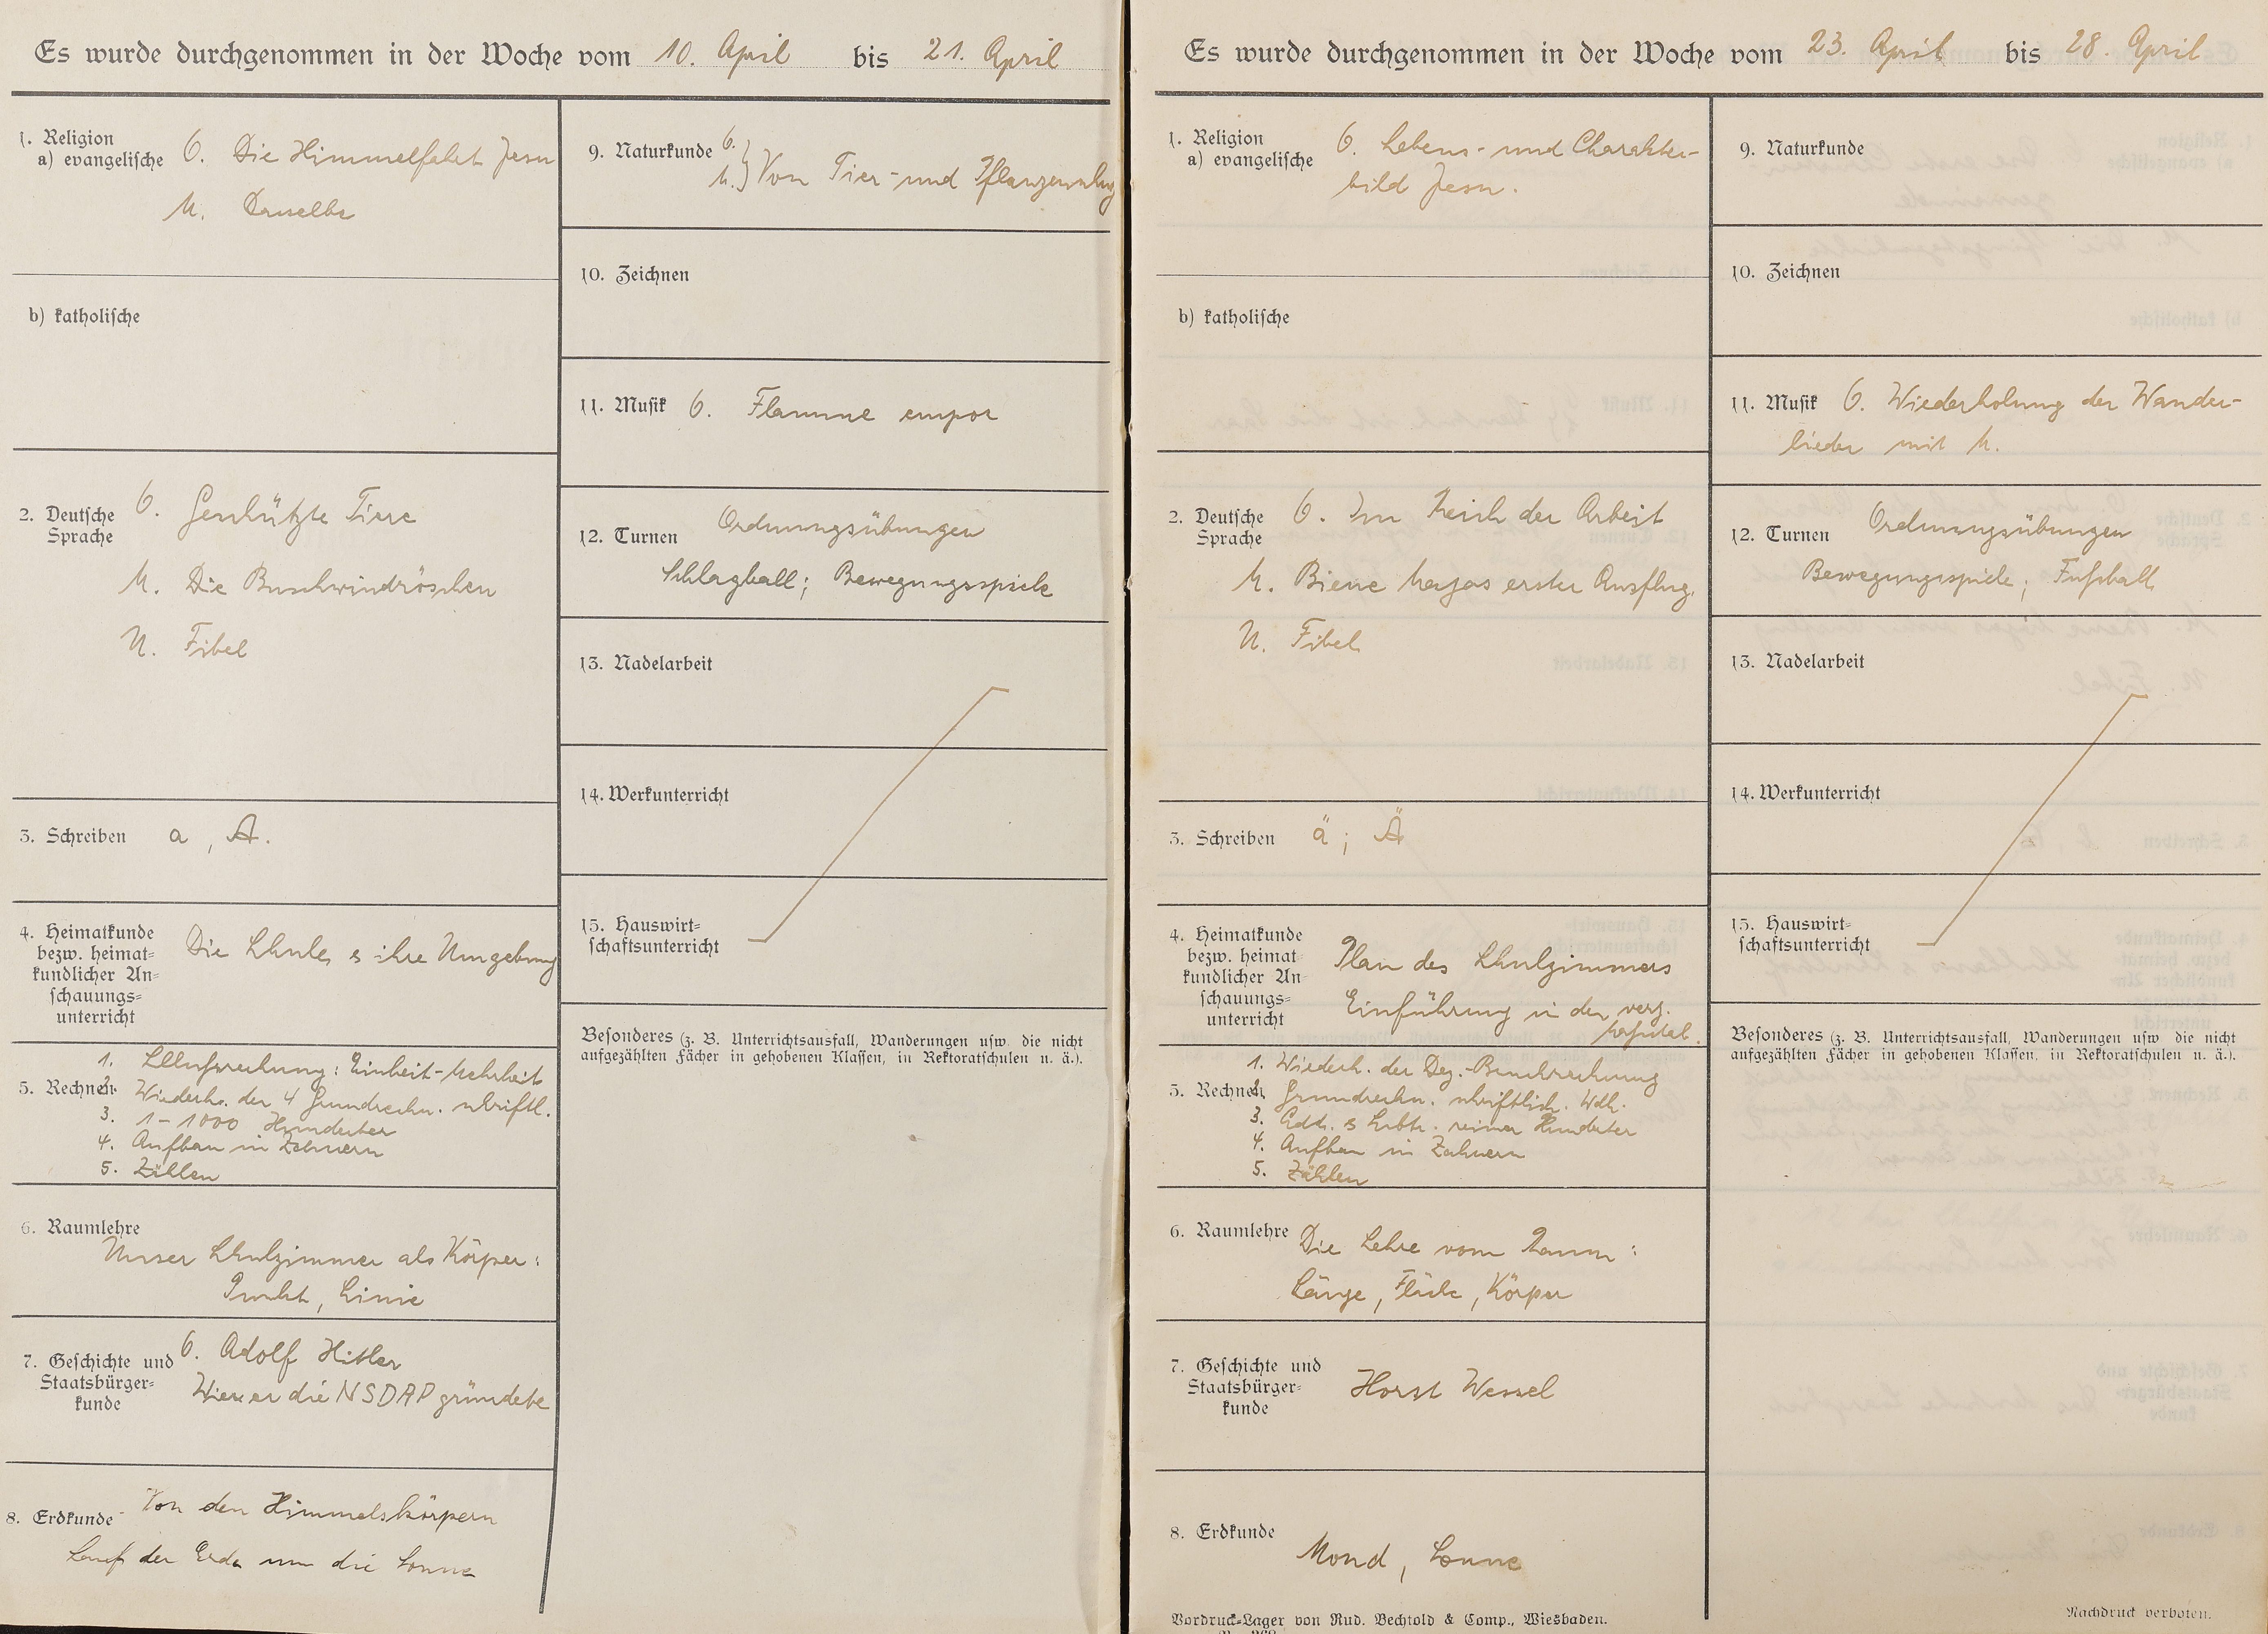 Es wurde durchgenommen in der Woche vom 10. April bis 21. April
1. Religion
a) evangelische O. Die Himmelfahrt Jesu
M. Dasselbe
b) katholische
2. Deutsche
Sprache
O. Geschützte Tiere
M. Die Buschwindröschen
U. Fibel
3. Schreiben a, A.
4. Heimatkunde
bezw. heimat-
kundlicher An-
schauungs-
unterricht
Die Schule, s ihre Umgebung
5. Rechnen
1. Schlußrechnung: Einheit-Mehrheit
2. Wiederh. der 4 Grundrechn. schriftl.
3. 1-1000 Hunderter
4. Aufbau in Zehnern
5. Zählen
6. Raumlehre
Unser Schulzimmer als Körper:
Punkt, Linie
7. Geschichte und
Staatsbürger-
kunde
O. Adolf Hitler
Wie er die NSDAP gründete
8. Erdkunde Von den Himmelskörpern
Lauf der Erde um die Sonne
9. Naturkunde O.
M. } Von Tier- und Pflanzenschutz
10. Zeichnen
11. Musik O. Flamme empor
12. Turnen Ordnungsübungen
Schlagball; Bewegungsspiele
13. Nadelarbeit
14. Werkunterricht
15. Hauswirt-
schaftsunterricht
Besonderes (z. B. Unterrichtsausfall, Wanderungen usw. die nicht
aufgezählten Fächer in gehobenen Klassen, in Rektoratschulen u. ä.).
Es wurde durchgenommen in der Woche vom 23. April bis 28. April
1. Religion
a) evangelische O. Lebens- und Charakter-
bild Jesu.
b) katholische
2. Deutsche
Sprache
O. Im Reich der Arbeit
M. Biene Majas erster Ausflug.
U. Fibel
3. Schreiben ä; Ä
4. Heimatkunde
bezw. heimat
kundlicher An
schauungs-
unterricht
Plan des Schulzimmers
Einführung in den verj.
5. Rechnen
1. Wiederh. der Dez.-Bruchrechnung
2. Grundrechn. schriftlich. Wdh.
3. Add. s Subtr. reiner Hunderter
4. Aufbau in Zehnern
5. Zählen
6. Raumlehre Die Lehre vom Raum:
Länge, Fläche, Körper
7. Geschichte und
Staatsbürger-
kunde
Horst Wessel
8. Erdkunde
Mond, Sonne
Vordruck-Lager von Rud. Bechtold & Comp., Wiesbaden.
9. Naturkunde
10. Zeichnen
11. Musik O. Wiederholung der Wander-
lieder mit M.
12. Turnen Ordnungsübungen
Bewegungsspiele; Fußball
13. Nadelarbeit
14. Werkunterricht
15. Hauswirt-
schaftsunterricht
Besonderes (z. B. Unterrichtsausfall, Wanderungen usw die nicht
aufgezählten Fächer in gehobenen Klassen, in Rektoratschulen u. ä.).
Nachdruck verboten.